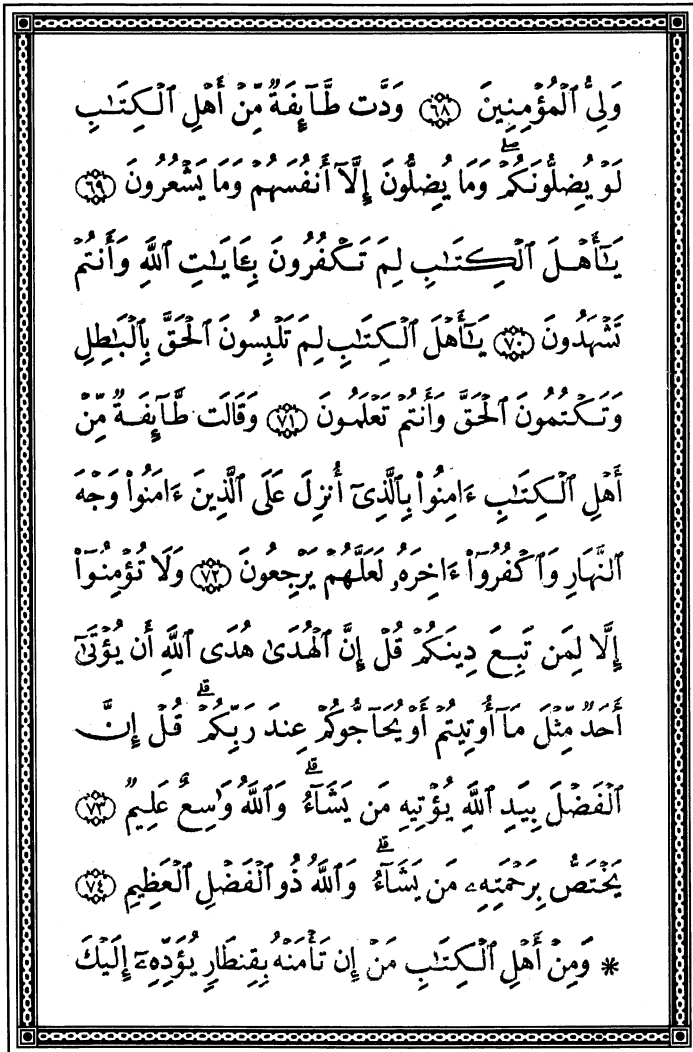 وَلِيُّ ٱلْمُؤْمِنِينَ ٦٨ وَدَّت طَّآئِفَةٌ مِّنْ أَهْلِ ٱلْكِتَـٰبِ
لَوْ يُضِلُّونَكُمْ ۖ وَمَا يُضِلُّونَ إِلَّآ أَنفُسَهُمْ وَمَا يَشْعُرُونَ ٦٩
يَـٰٓأَهْلَ ٱلْكِتَـٰبِ لِمَ تَكْفُرُونَ بِـَٔايَـٰتِ ٱللَّهِ وَأَنتُمْ
تَشْهَدُونَ ٧٠ يَـٰٓأَهْلَ ٱلْكِتَـٰبِ لِمَ تَلْبِسُونَ ٱلْحَقَّ بِٱلْبَـٰطِلِ
وَتَكْتُمُونَ ٱلْحَقَّ وَأَنتُمْ تَعْلَمُونَ ٧١ وَقَالَت طَّآئِفَةٌ مِّنْ
أَهْلِ ٱلْكِتَـٰبِ ءَامِنُوا۟ بِٱلَّذِىٓ أُنزِلَ عَلَى ٱلَّذِينَ ءَامَنُوا۟ وَجْهَ
ٱلنَّهَارِ وَٱكْفُرُوٓا۟ ءَاخِرَهُۥ لَعَلَّهُمْ يَرْجِعُونَ ٧٢ وَلَا تُؤْمِنُوٓا۟
إِلَّا لِمَن تَبِعَ دِينَكُمْ قُلْ إِنَّ ٱلْهُدَىٰ هُدَى ٱللَّهِ أَن يُؤْتَىٰٓ
أَحَدٌ مِّثْلَ مَآ أُوتِيتُمْ أَوْ يُحَآجُّوكُمْ عِندَ رَبِّكُمْ ۗ قُلْ إِنَّ
ٱلْفَضْلَ بِيَدِ ٱللَّهِ يُؤْتِيهِ مَن يَشَآءُ ۗ وَٱللَّهُ وَٰسِعٌ عَلِيمٌ ٧٣
يَخْتَصُّ بِرَحْمَتِهِۦ مَن يَشَآءُ ۗ وَٱللَّهُ ذُو ٱلْفَضْلِ ٱلْعَظِيمِ ٧٤
* وَمِنْ أَهْلِ ٱلْكِتَـٰبِ مَنْ إِن تَأْمَنْهُ بِقِنطَارٍ يُؤَدِّهِۦٓ إِلَيْكَ